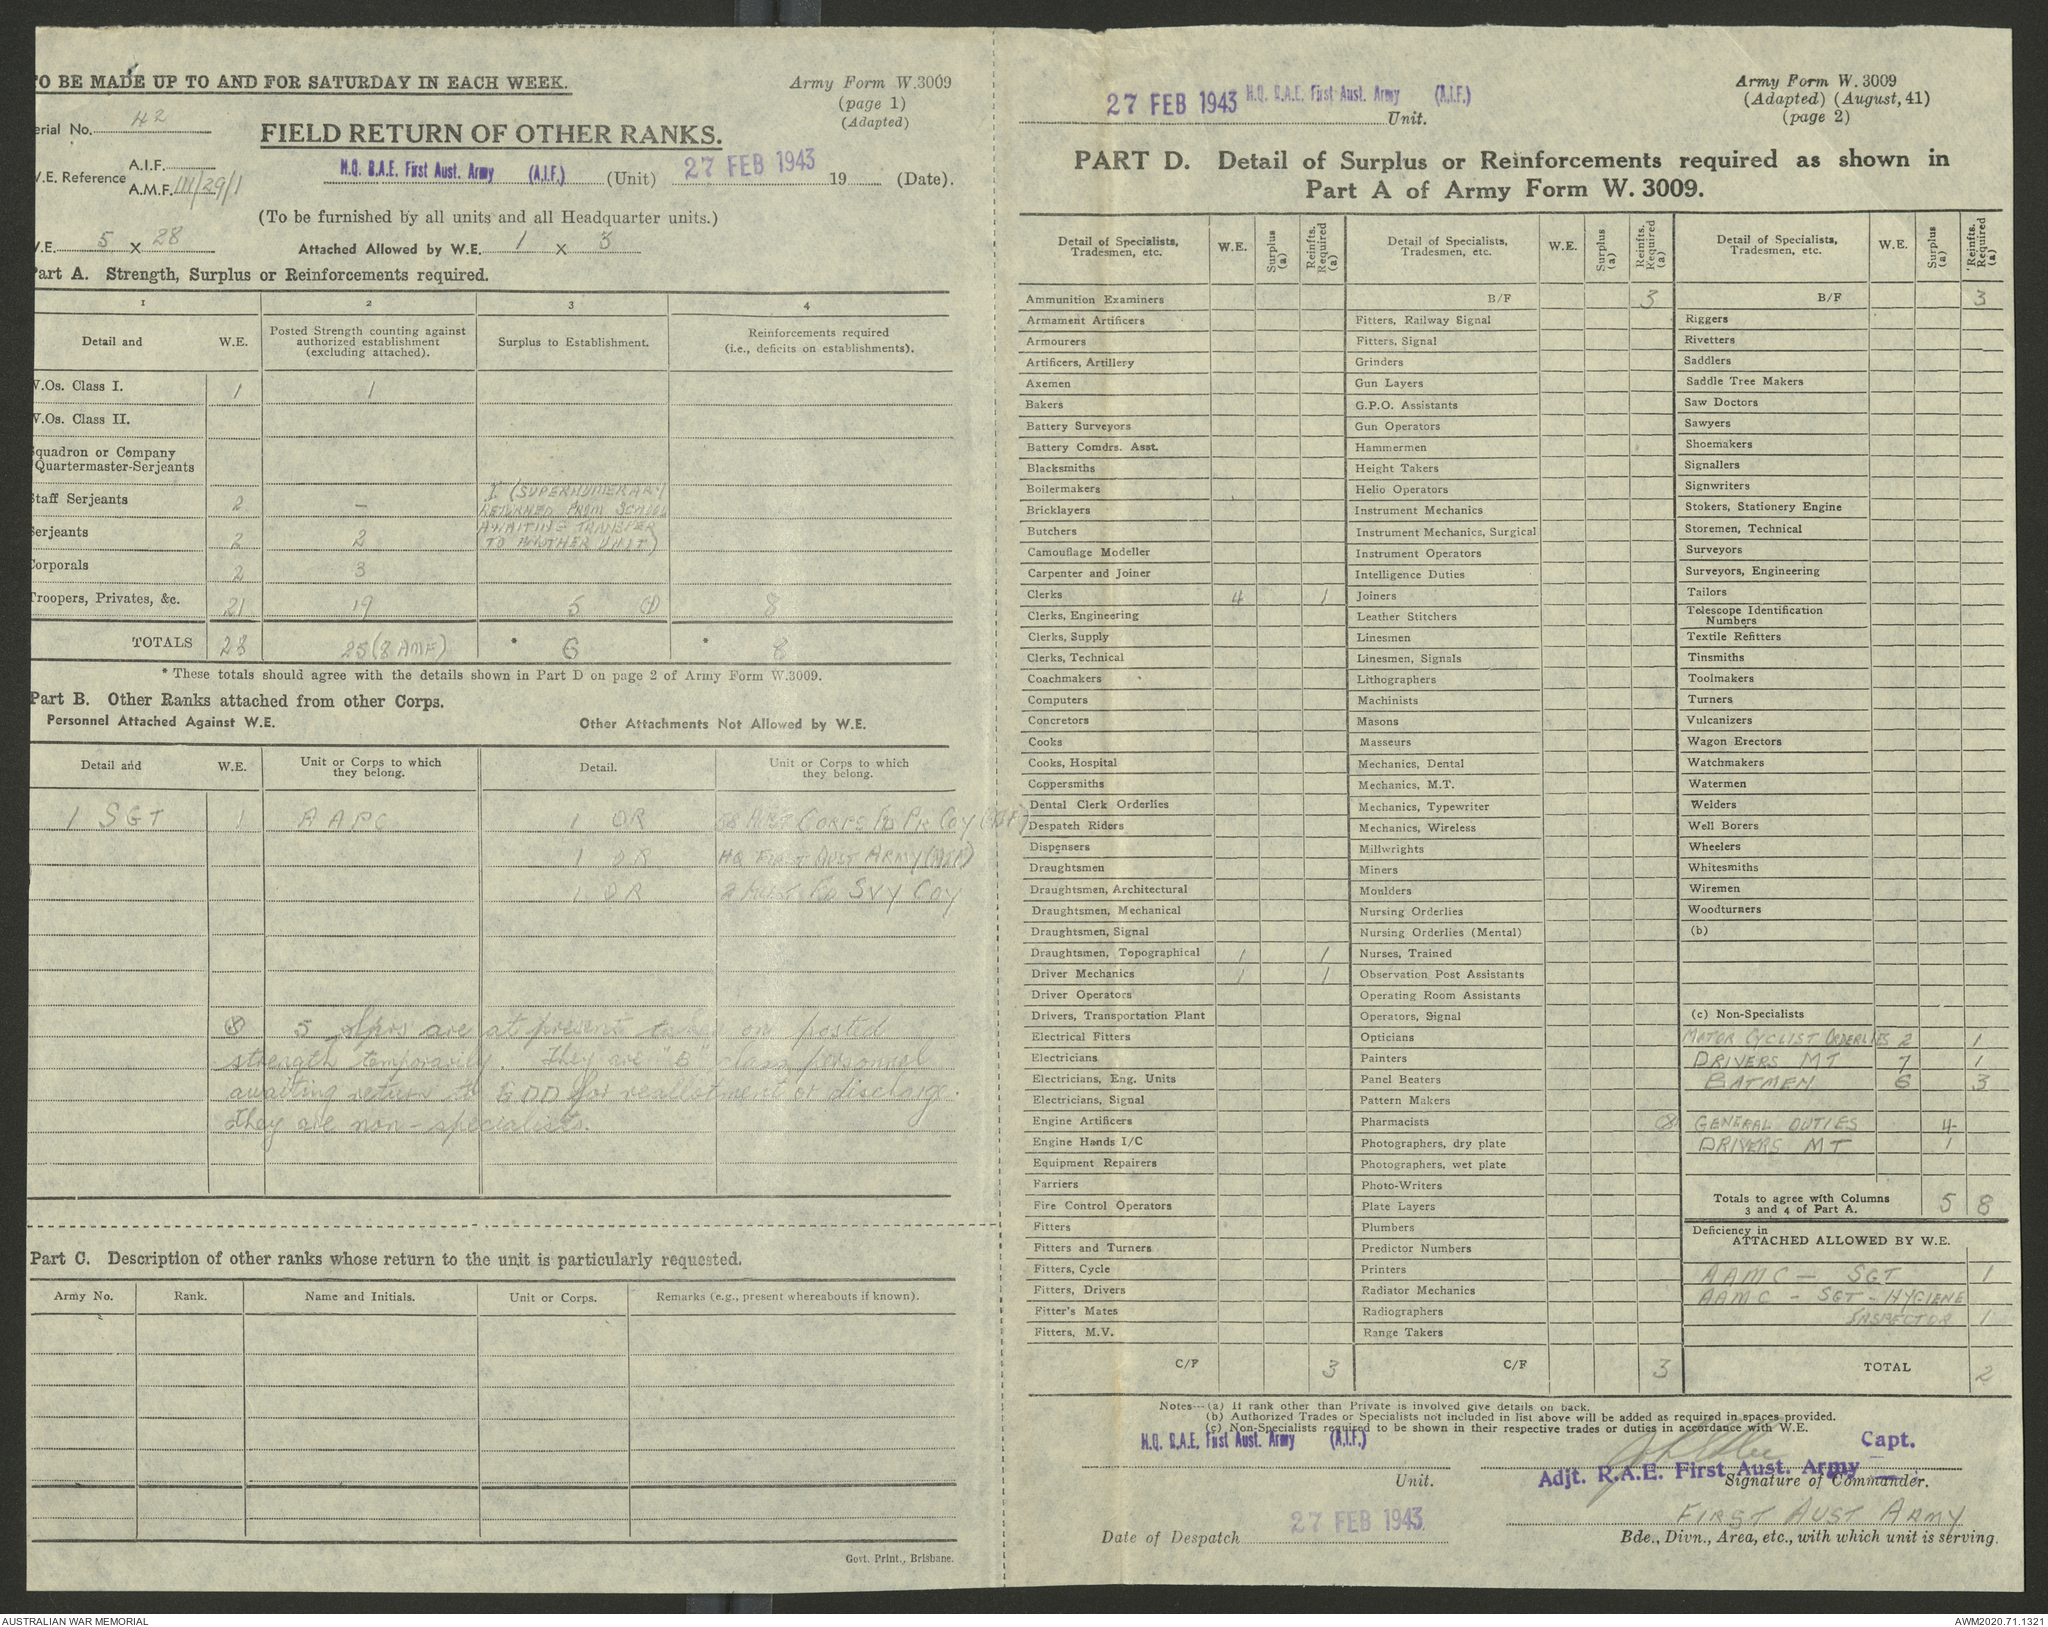 TO BE MADE UP TO AND FOR SATURDAY IN EACH WEEK.
Army Form W.3009
(page 1)
(Adapted)
erial No. 42
FIELD RETURN OF OTHER RANKS.
W.E. Reference A.I.F.
A.M.F. III/29/1
H.Q. R.A.E. First Aust. Army (A.I.F.) (Unit) 27 FEB 1943 19 (Date).
(To be furnished by all units and all Headquarter units.)
W.E. 5 x 28 Attached Allowed by W.E. 1 x 3
Part A. Strength, Surplus or Reinforcements required.
1 2 3 4
Detail and W.E. Posted Strength counting against authorized establishment (excluding attached). Surplus to Establishment. Reinforcements required (i.e., deficits on establishments).
W.Os. Class I. 1 1
W.Os. Class II.
Squadron or Company
Quartermaster-Serjeants
Staff Serjeants 2 – 1 (SUPERNUMERARY
RETURNED FROM SCHOOL
AWAITING TRANSFER
TO ANOTHER UNIT)
Serjeants 2 2
Corporals 2 3
Troopers, Privates, &c. 21 19 5 8
TOTALS 28 25 (8 AMF) * 6 * 8
* These totals should agree with the details shown in Part D on page 2 of Army Form W.3009.
Part B. Other Ranks attached from other Corps.
Personnel Attached Against W.E. Other Attachments Not Allowed by W.E.
Detail and W.E. Unit or Corps to which they belong. Detail. Unit or Corps to which they belong.
1 SGT 1 AAPC 1 OR AUST CORPS FD PK COY
1 OR HQ FIRST AUST ARMY
1 OR 2 AUST FD SVY COY
5 Sprs are at present taken on posted
strength temporarily. They are "B" class personnel
awaiting return to GDD for reallotment or discharge.
They are non-specialists.
Part C. Description of other ranks whose return to the unit is particularly requested.
Army No. Rank. Name and Initials. Unit or Corps. Remarks (e.g., present whereabouts if known).
Govt. Print., Brisbane.
27 FEB 1943 H.Q. R.A.E. First Aust. Army (A.I.F.)
Unit.
Army Form W. 3009
(Adapted) (August, 41)
(page 2)
PART D. Detail of Surplus or Reinforcements required as shown in
Part A of Army Form W. 3009.
Detail of Specialists, Tradesmen, etc. W.E. Surplus (a) Reinfts. Required (a)
Ammunition Examiners
Armament Artificers
Armourers
Artificers, Artillery
Axemen
Bakers
Battery Surveyors
Battery Comdrs. Asst.
Blacksmiths
Boilermakers
Bricklayers
Butchers
Camouflage Modeller
Carpenter and Joiner
Clerks 4 1
Clerks, Engineering
Clerks, Supply
Clerks, Technical
Coachmakers
Computers
Concretors
Cooks
Cooks, Hospital
Coppersmiths
Dental Clerk Orderlies
Despatch Riders
Dispensers
Draughtsmen
Draughtsmen, Architectural
Draughtsmen, Mechanical
Draughtsmen, Signal
Draughtsmen, Topographical 1 1
Driver Mechanics 1 1
Driver Operators
Drivers, Transportation Plant
Electrical Fitters
Electricians
Electricians, Eng. Units
Electricians, Signal
Engine Artificers
Engine Hands I/C
Equipment Repairers
Farriers
Fire Control Operators
Fitters
Fitters and Turners
Fitters, Cycle
Fitters, Drivers
Fitter's Mates
Fitters, M.V.
C/F 3
Detail of Specialists, Tradesmen, etc. W.E. Surplus (a) Reinfts. Required (a)
B/F 3
Fitters, Railway Signal
Fitters, Signal
Grinders
Gun Layers
G.P.O. Assistants
Gun Operators
Hammermen
Height Takers
Helio Operators
Instrument Mechanics
Instrument Mechanics, Surgical
Instrument Operators
Intelligence Duties
Joiners
Leather Stitchers
Linesmen
Linesmen, Signals
Lithographers
Machinists
Masons
Masseurs
Mechanics, Dental
Mechanics, M.T.
Mechanics, Typewriter
Mechanics, Wireless
Millwrights
Miners
Moulders
Nursing Orderlies
Nursing Orderlies (Mental)
Nurses, Trained
Observation Post Assistants
Operating Room Assistants
Operators, Signal
Opticians
Painters
Panel Beaters
Pattern Makers
Pharmacists
Photographers, dry plate
Photographers, wet plate
Photo-Writers
Plate Layers
Plumbers
Predictor Numbers
Printers
Radiator Mechanics
Radiographers
Range Takers
C/F 3
Detail of Specialists, Tradesmen, etc. W.E. Surplus (a) Reinfts. Required (a)
B/F 3
Riggers
Rivetters
Saddlers
Saddle Tree Makers
Saw Doctors
Sawyers
Shoemakers
Signallers
Signwriters
Stokers, Stationery Engine
Storemen, Technical
Surveyors
Surveyors, Engineering
Tailors
Telescope Identification
Numbers
Textile Refitters
Tinsmiths
Toolmakers
Turners
Vulcanizers
Wagon Erectors
Watchmakers
Watermen
Welders
Well Borers
Wheelers
Whitesmiths
Wiremen
Woodturners
(b)
(c) Non-Specialists
MOTOR CYCLIST ORDERLIES 2 1
DRIVERS MT 7 1
BATMEN 6 3
GENERAL DUTIES 4
DRIVERS MT 1
Totals to agree with Columns
3 and 4 of Part A. 5 8
Deficiency in
ATTACHED ALLOWED BY W.E.
AAMC – SGT 1
AAMC – SGT – HYGIENE
INSPECTOR 1
TOTAL 2
Notes—(a) If rank other than Private is involved give details on back.
(b) Authorized Trades or Specialists not included in list above will be added as required in spaces provided.
(c) Non-Specialists required to be shown in their respective trades or duties in accordance with W.E.
H.Q. R.A.E. First Aust. Army (A.I.F.)
Unit.
Capt.
Adjt. R.A.E. First Aust. Army
Signature of Commander.
Date of Despatch 27 FEB 1943
FIRST AUST ARMY
Bde., Divn., Area, etc., with which unit is serving.
AUSTRALIAN WAR MEMORIAL
AWM2020.71.1321